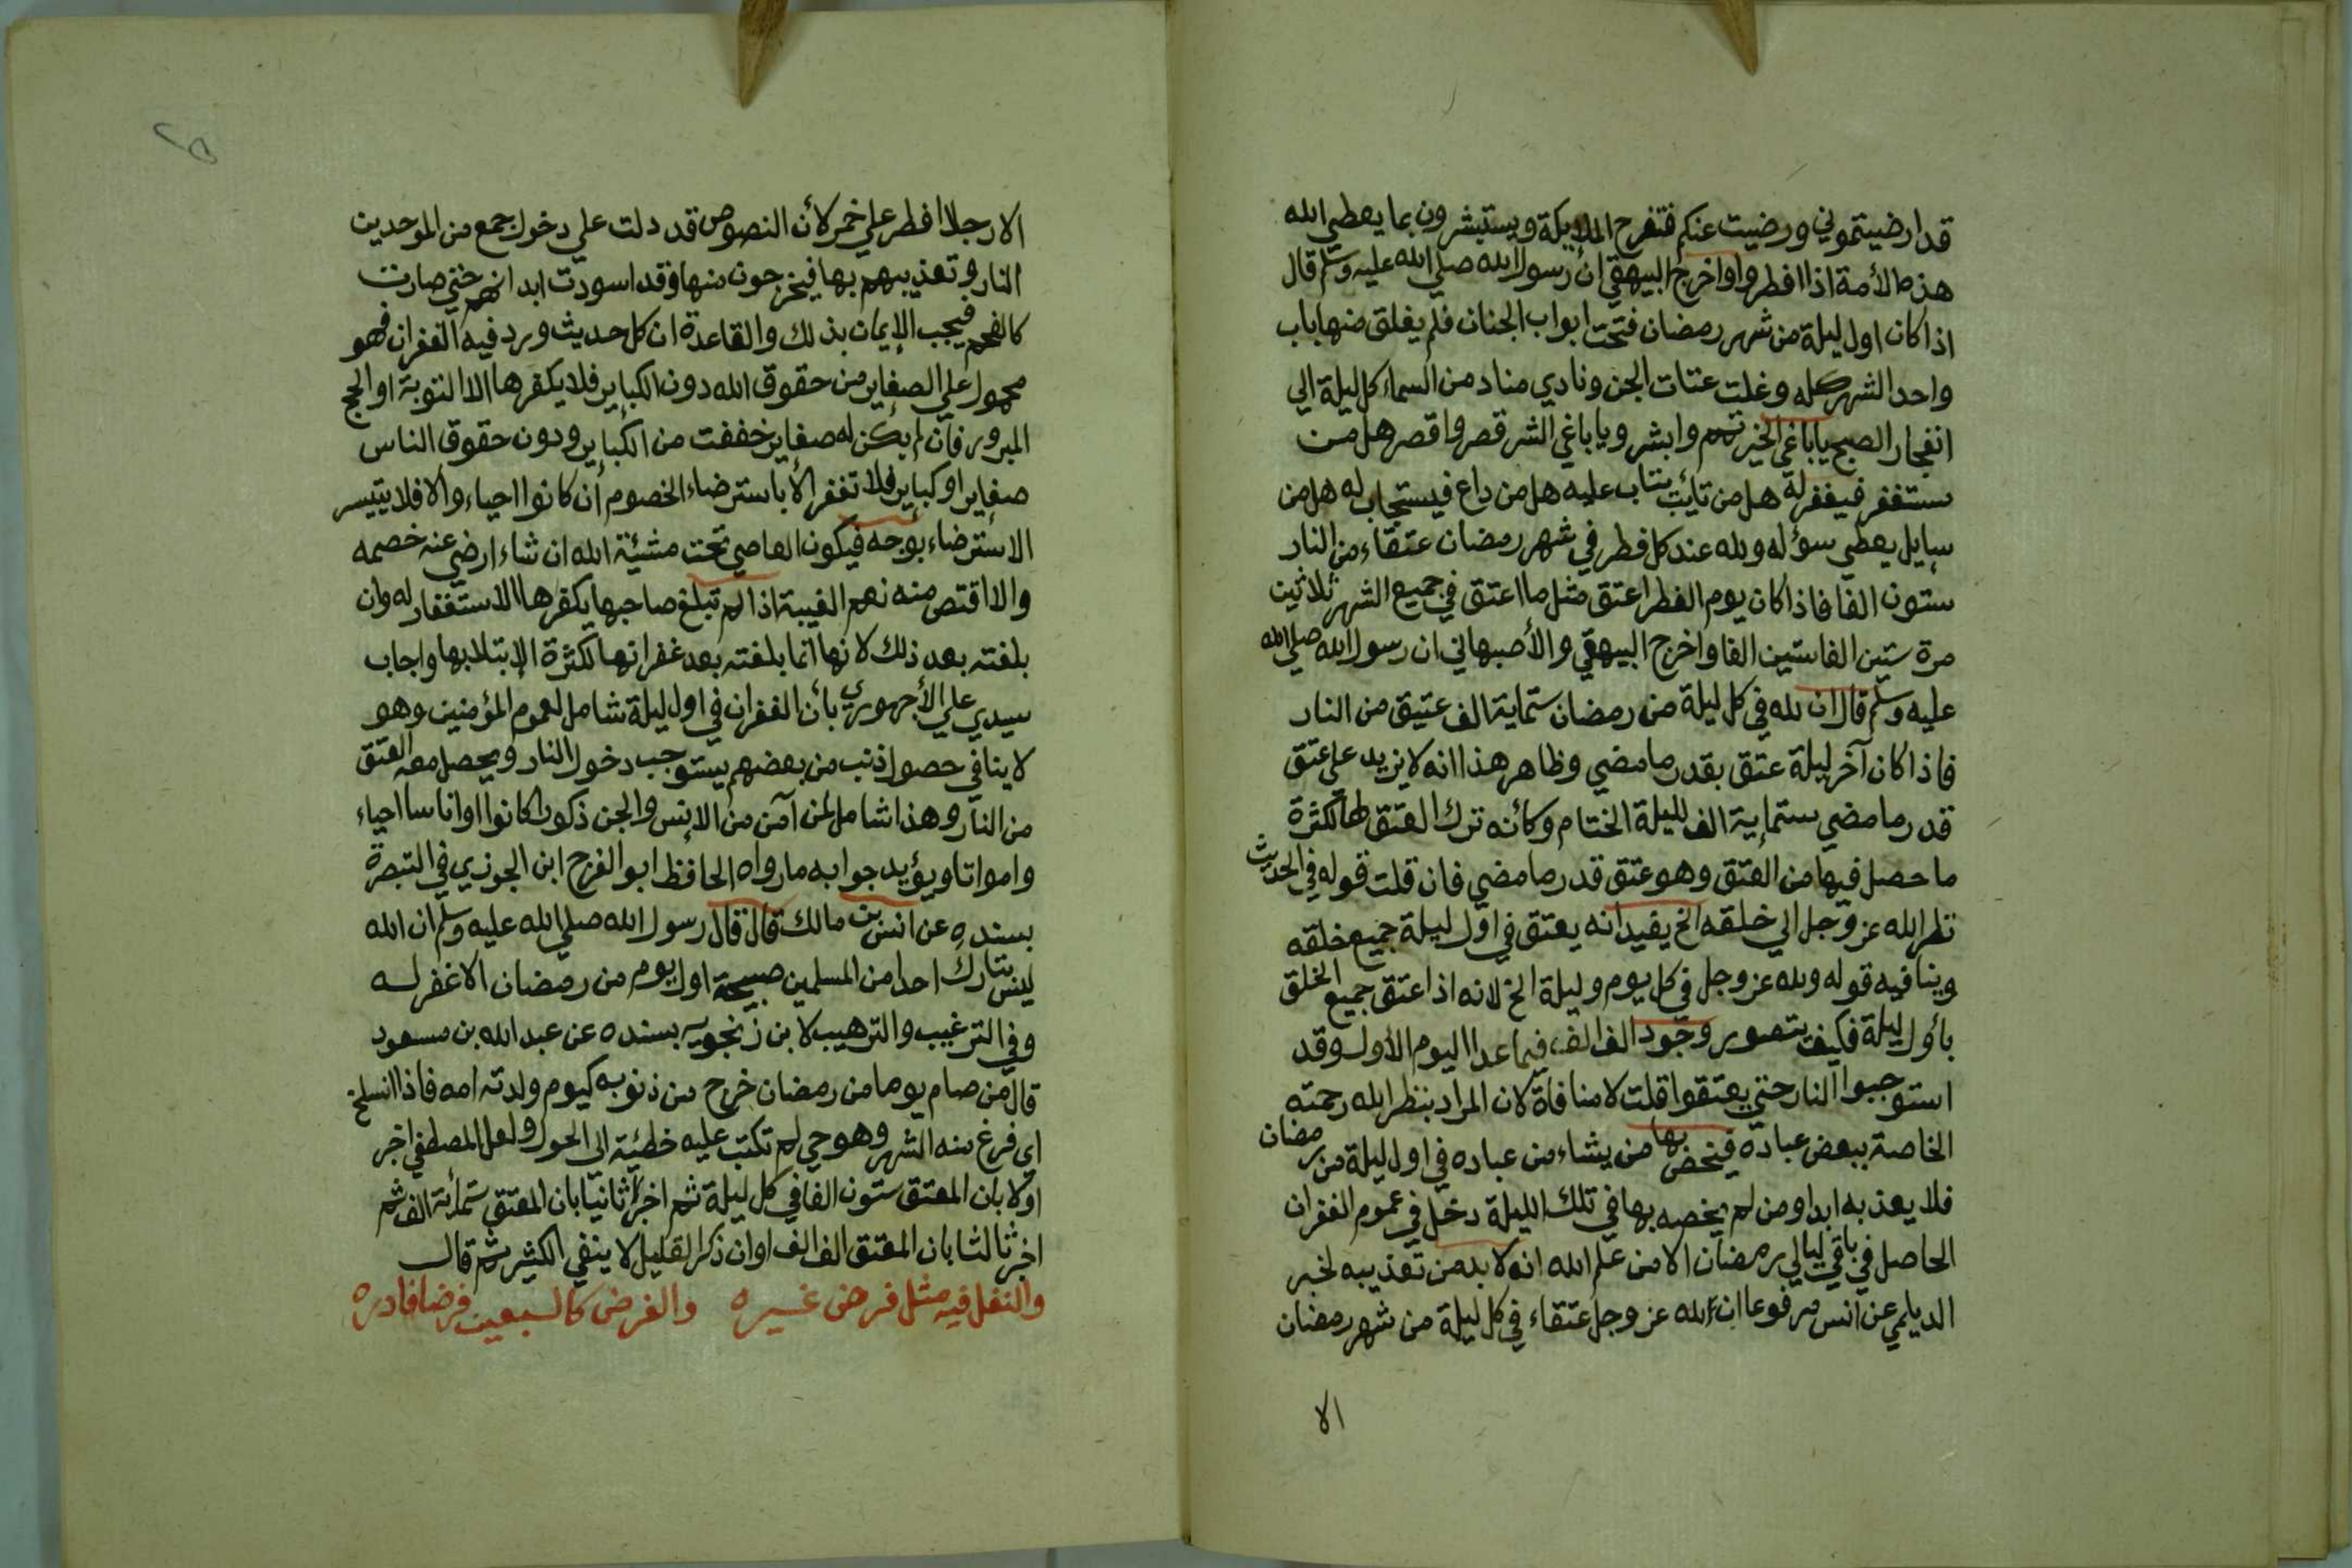 قد ارضيتموني ورضيت عنكم فتفرح الملايكة ويستبشرون بما يعطي الله
هذه الأمة اذا افطروا واخرج البيهقي ان رسول الله صلي الله عليه وسلم قال
اذا كان اول ليلة من شهر رمضان فتحت ابواب الجنان فلم يغلق منها باب
واحد الشهر كله وغلت عتات الجن ونادي مناد من السماء كل ليلة الي
انفجار الصبح ياباغي الخير تمم وابشر وياباغي الشر قصر واقصر هل من
ستغفر فيغفر له هل من تايب يتاب عليه هل من داع فيستجاب له هل من
سايل يعطي سؤله ولله عند كل فطر في شهر رمضان عتقاء من النار
ستون الفا فاذا كان يوم الفطر اعتق مثل ما اعتق في جميع الشهر ثلاثين
مرة ستين الفا ستين الفا واخرج البيهقي والأصبهاني ان رسول الله صلي الله
عليه وسلم قال ان لله في كل ليلة من رمضان ستماية الف عتيق من النار
فاذا كان آخر ليلة عتق بقدر ما مضي وظاهر هذا انه لا يزيد علي عتق
قدر ما مضي ستماية الف لليلة الختام وكأنه ترك العتق لها لكثرة
ما حصل فيها من العتق وهو عتق قدر ما مضي فان قلت قوله في الحديث
نظر الله عز وجل الي خلقه الخ يفيد انه يعتق في اول ليلة جميع خلقه
وينافيه قوله ولله عز وجل في كل يوم وليلة الخ لانه اذا عتق جميع الخلق
بأول ليلة فكيف يتصور وجود الف الف فيما عدا اليوم الأول وقد
استوجبوا النار حتي يعتقوا قلت لا منافاة لان المراد بنظر الله رحمته
الخاصة ببعض عباده فيخص بها من يشاء من عباده في اول ليلة من رمضان
فلا يعذبه ابدا ومن لم يخصه بها في تلك الليلة دخل في عموم الغفران
الحاصل في باقي ليالي رمضان الا من علم الله انه لا بد من تعذيبه لخبر
الديلمي عن انس مرفوعا ان لله عز وجل عتقاء في كل ليلة من شهر رمضان
الا
الا رجلا افطر علي خمر لأن النصوص قد دلت علي دخول جمع من الموحدين
النار وتعذيبهم بها فيخرجون منها وقد اسودت ابدانهم حتي صارت
كالفحم فيجب الإيمان بذلك والقاعدة ان كل حديث ورد فيه الغفران فهو
محمول علي الصغاير من حقوق الله دون الكباير فلا يكفرها الا التوبة او الحج
المبرور فان لم يكن له صغاير خففت من الكباير ودون حقوق الناس
صغاير او كباير فلا تغفر الا باسترضاء الخصوم ان كانوا احياء والا فلا يتيسر
الاسترضاء بوجه فيكون العاصي تحت مشيئة الله ان شاء ارضي عنه خصمه
والا اقتص منه نعم الغيبة اذا لم تبلغ صاحبها يكفرها الاستغفار له وان
بلغته بعد ذلك لانها انما بلغته بعد غفرانها لكثرة الإبتلا بها واجاب
سيدي علي الأجهوري بأن الغفران في اول ليلة شامل لعموم المؤمنين وهو
لا ينافي حصول ذنب من بعضهم يستوجب دخول النار ويحصل معه العتق
من النار وهذا شامل لمن آمن من الإنس والجن ذكورا كانوا او اناسا احياء
وامواتا ويؤيد جوابه ما رواه الحافظ ابو الفرج ابن الجوزي في التبصرة
بسنده عن انس بن مالك قال قال رسول الله صلي الله عليه وسلم ان الله
ليس بتارك احدا من المسلمين صبيحة اول يوم من رمضان الا غفر له
وفي الترغيب والترهيب لابن زنجويه بسنده عن عبد الله بن مسعود
قال من صام يوما من رمضان خرج من ذنوبه كيوم ولدته امه فاذا انسلخ
اي فرغ منه الشهر وهو حي لم تكتب عليه خطئية الى الحول ولعل المصطفي اخبر
اولا بان المعتق ستون الفا في كل ليلة ثم اخبر ثانيا بان المعتق ستمائة الف ثم
اخبر ثالثا بان المعتق الف الف او ان ذكر القليل لا ينفي الكثير ثم قال
والنفل فيه مثل فرض غيره والفرض كالسبعين فرضا فادره